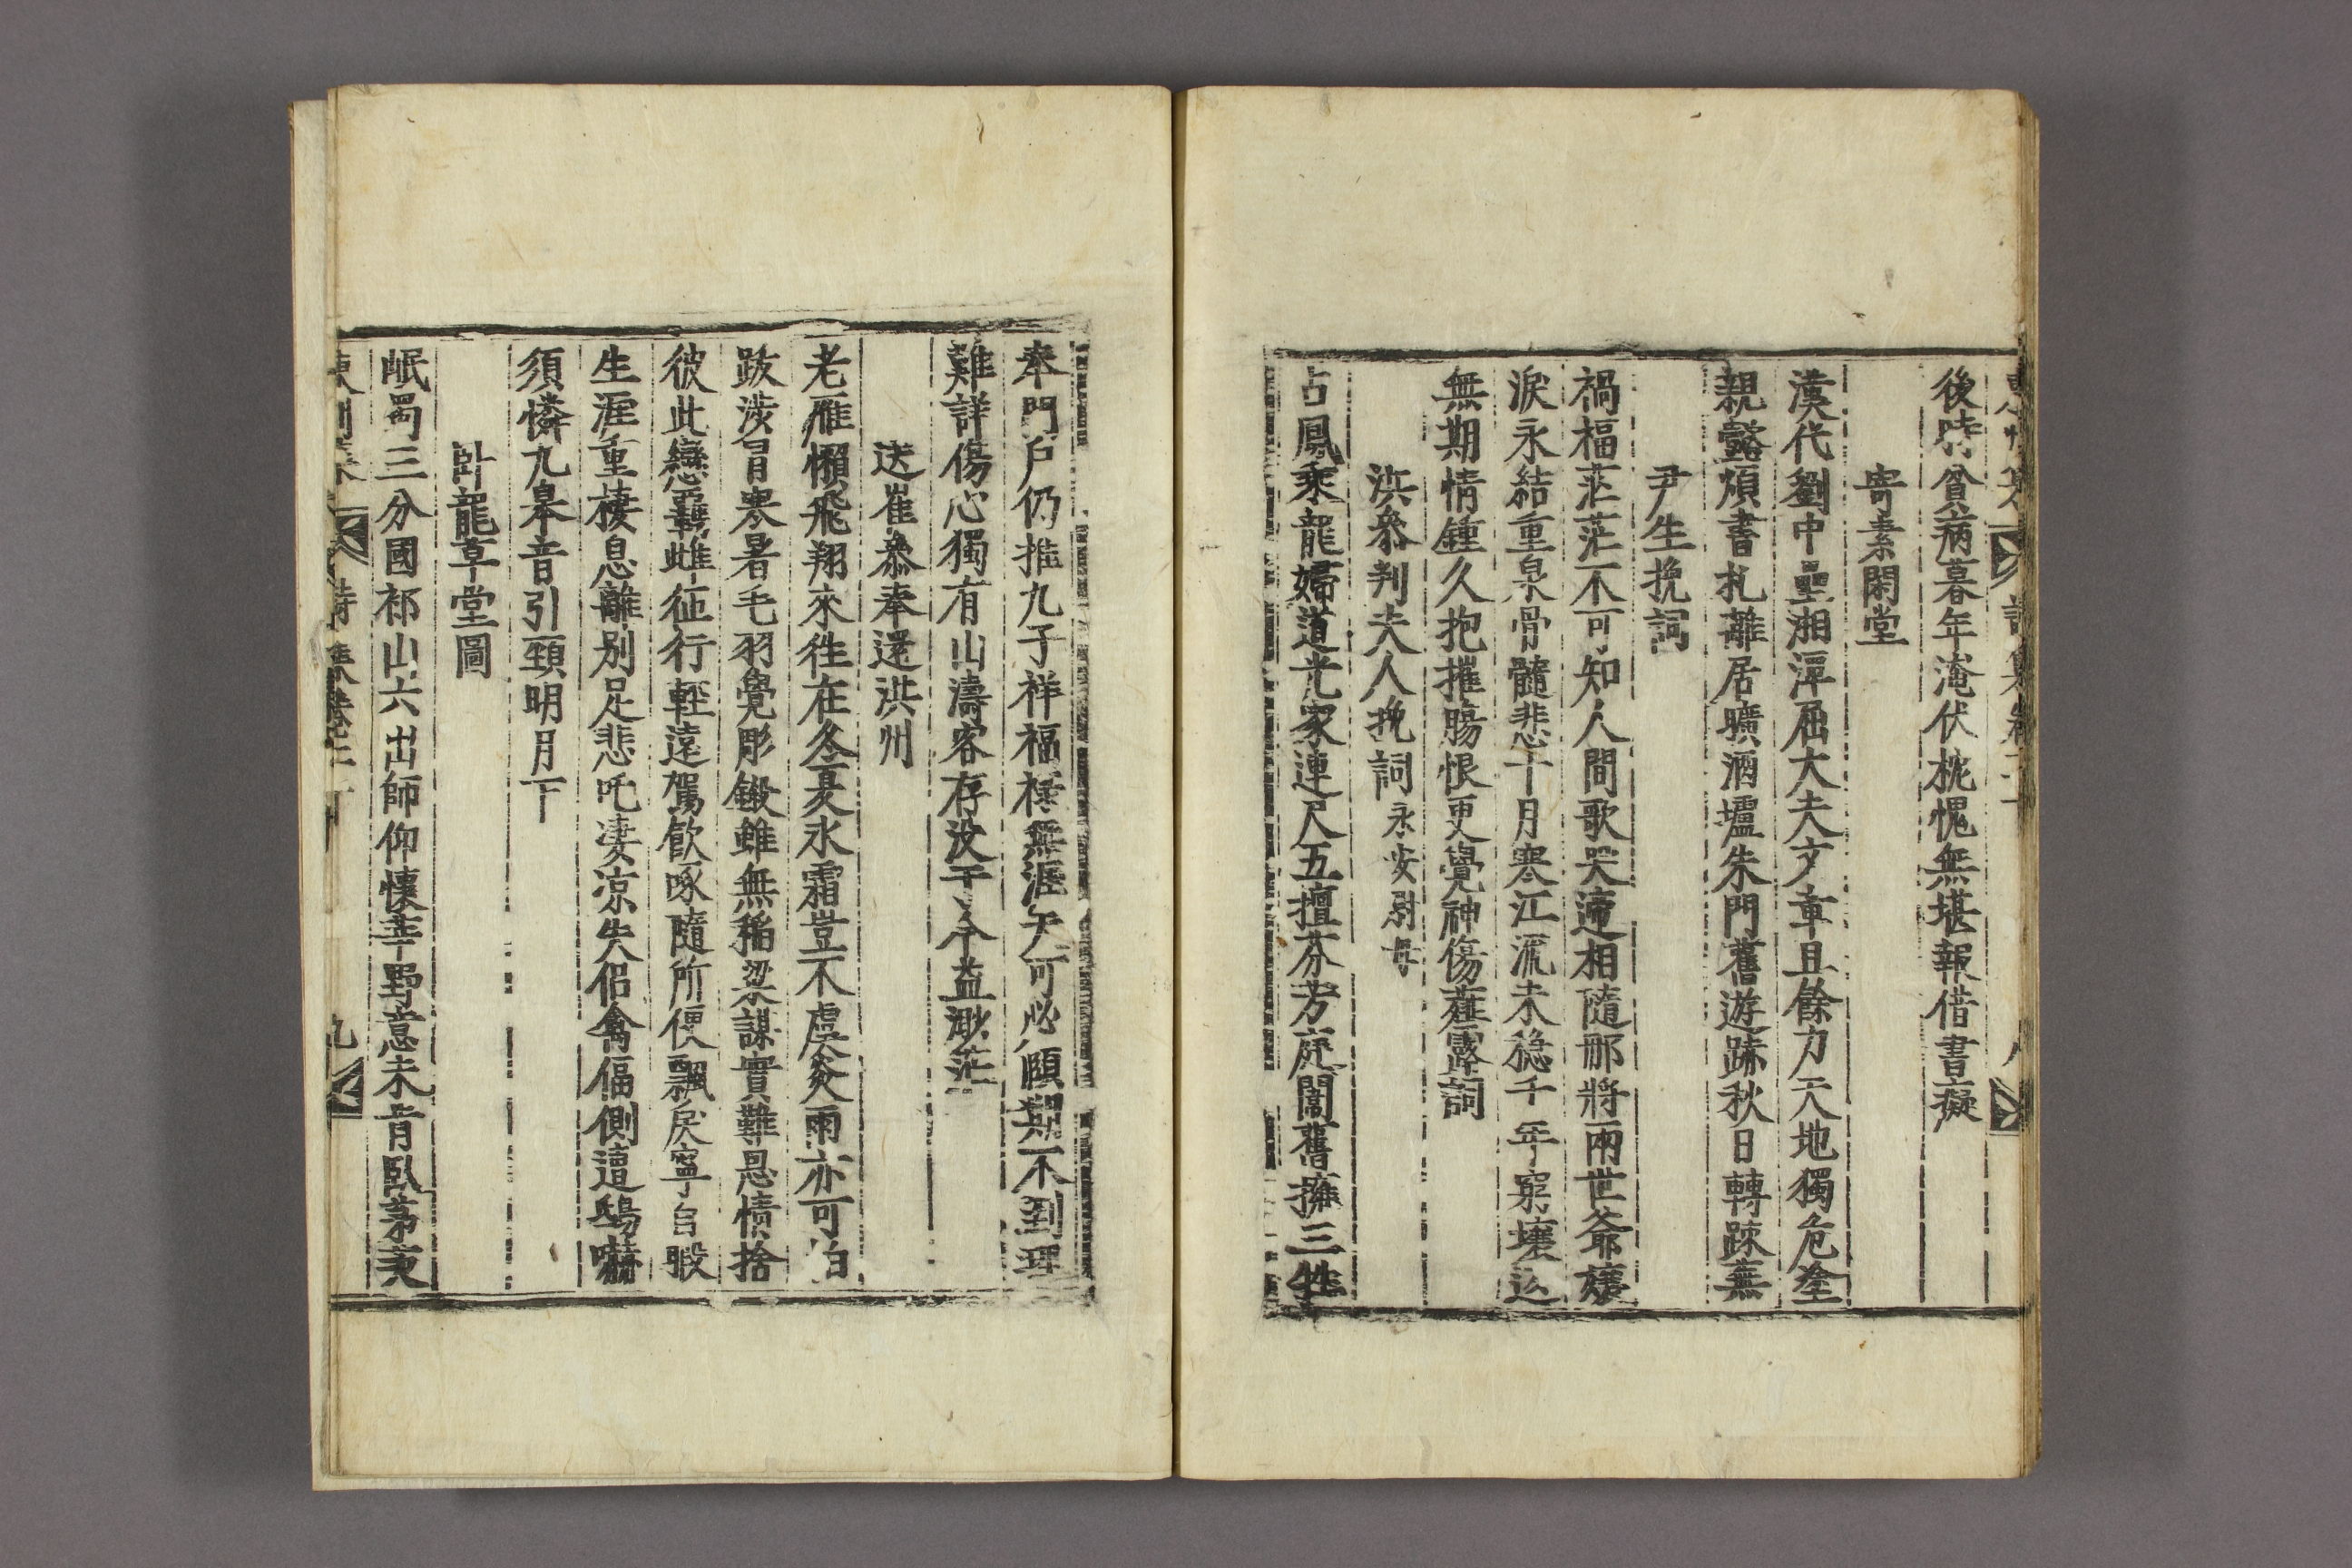 後時貧病暮年淹伏枕愧無堪報借書癡
寄素閑堂
漢代劉中壘湘潭屈大夫文章且餘力天地獨危塗
親豁煩書札離居曠酒壚朱門舊遊跡秋日轉踈蕪
尹生挽詞
禍福茫茫不可知人間歌哭遞相隨那將兩世爺孃
淚永結重泉骨髓悲十月寒江流未穩千年窮壤返
無期情鍾久抱摧腸恨更覺神傷薤露詞
洪叅判夫人挽詞永安尉母
占鳳乘龍婦道光家連尺五擅芬芳庭闈舊擁三牲
奉門戶仍推九子祥福樣無涯天可必頤期不到理
難詳傷心獨有山濤客存沒于今益渺茫
送崔叅奉還洪州
老雁懶飛翔來往在冬夏氷霜豈不虞炎雨亦可怕
跋涉冒寒暑毛羽覺彫鎩雖無稻粱謀實難恩情捨
彼此戀羈雌征行輕遠駕飮啄隨所便飄戾寧自暇
生涯重棲息離別足悲吒淒凉失侶禽偪側遭鴟嚇
須憐九皋音引頸明月下
臥龍草堂圖
岷蜀三分國祁山六出師仰懷莘野意未肯臥茅茨
東州集 詩集卷二 九